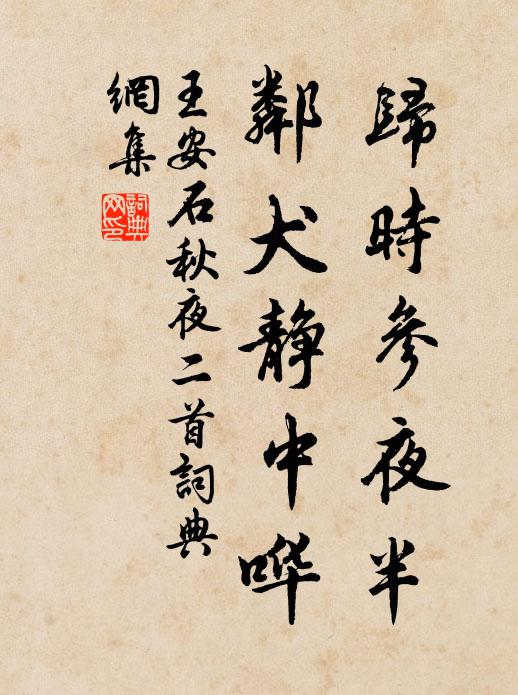 歸時參夜半
鄰犬静中哗
王安石秋夜二首詞典
網集
詞典
网印